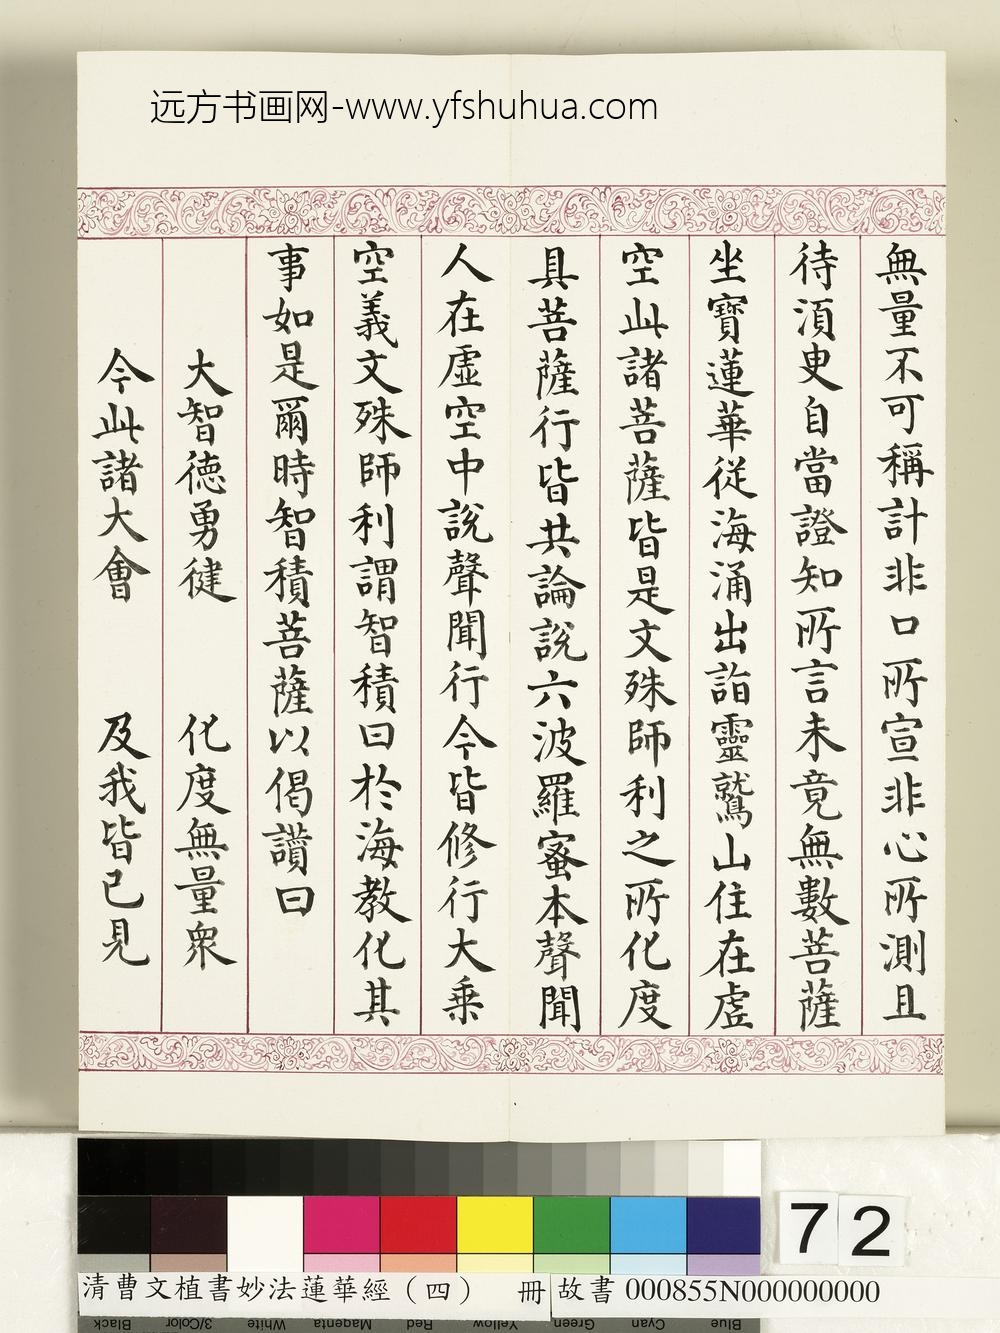 远方书画网-www.yfshuhua.com
無量不可稱計非口所宣非心所測且
待湏更自當證知所言未竟無數菩薩
坐寶蓮華從海涌出詣靈鷲山住在虛
空此諸菩薩皆是文殊師利之所化度
具菩薩行皆共論說六波羅蜜本聲聞
人在虛空中說聲聞行今皆修行大乘
空義文殊師利謂智積曰於海教化其
事如是爾時智積菩薩以偈讚曰
大智德勇健 化度無量眾
今此諸大會 及我皆已見
72
清曹文植書妙法蓮華經（四） 冊
故書 000855N000000000
Black 3/Color White Magenta Red Yellow Green Cyan Blue